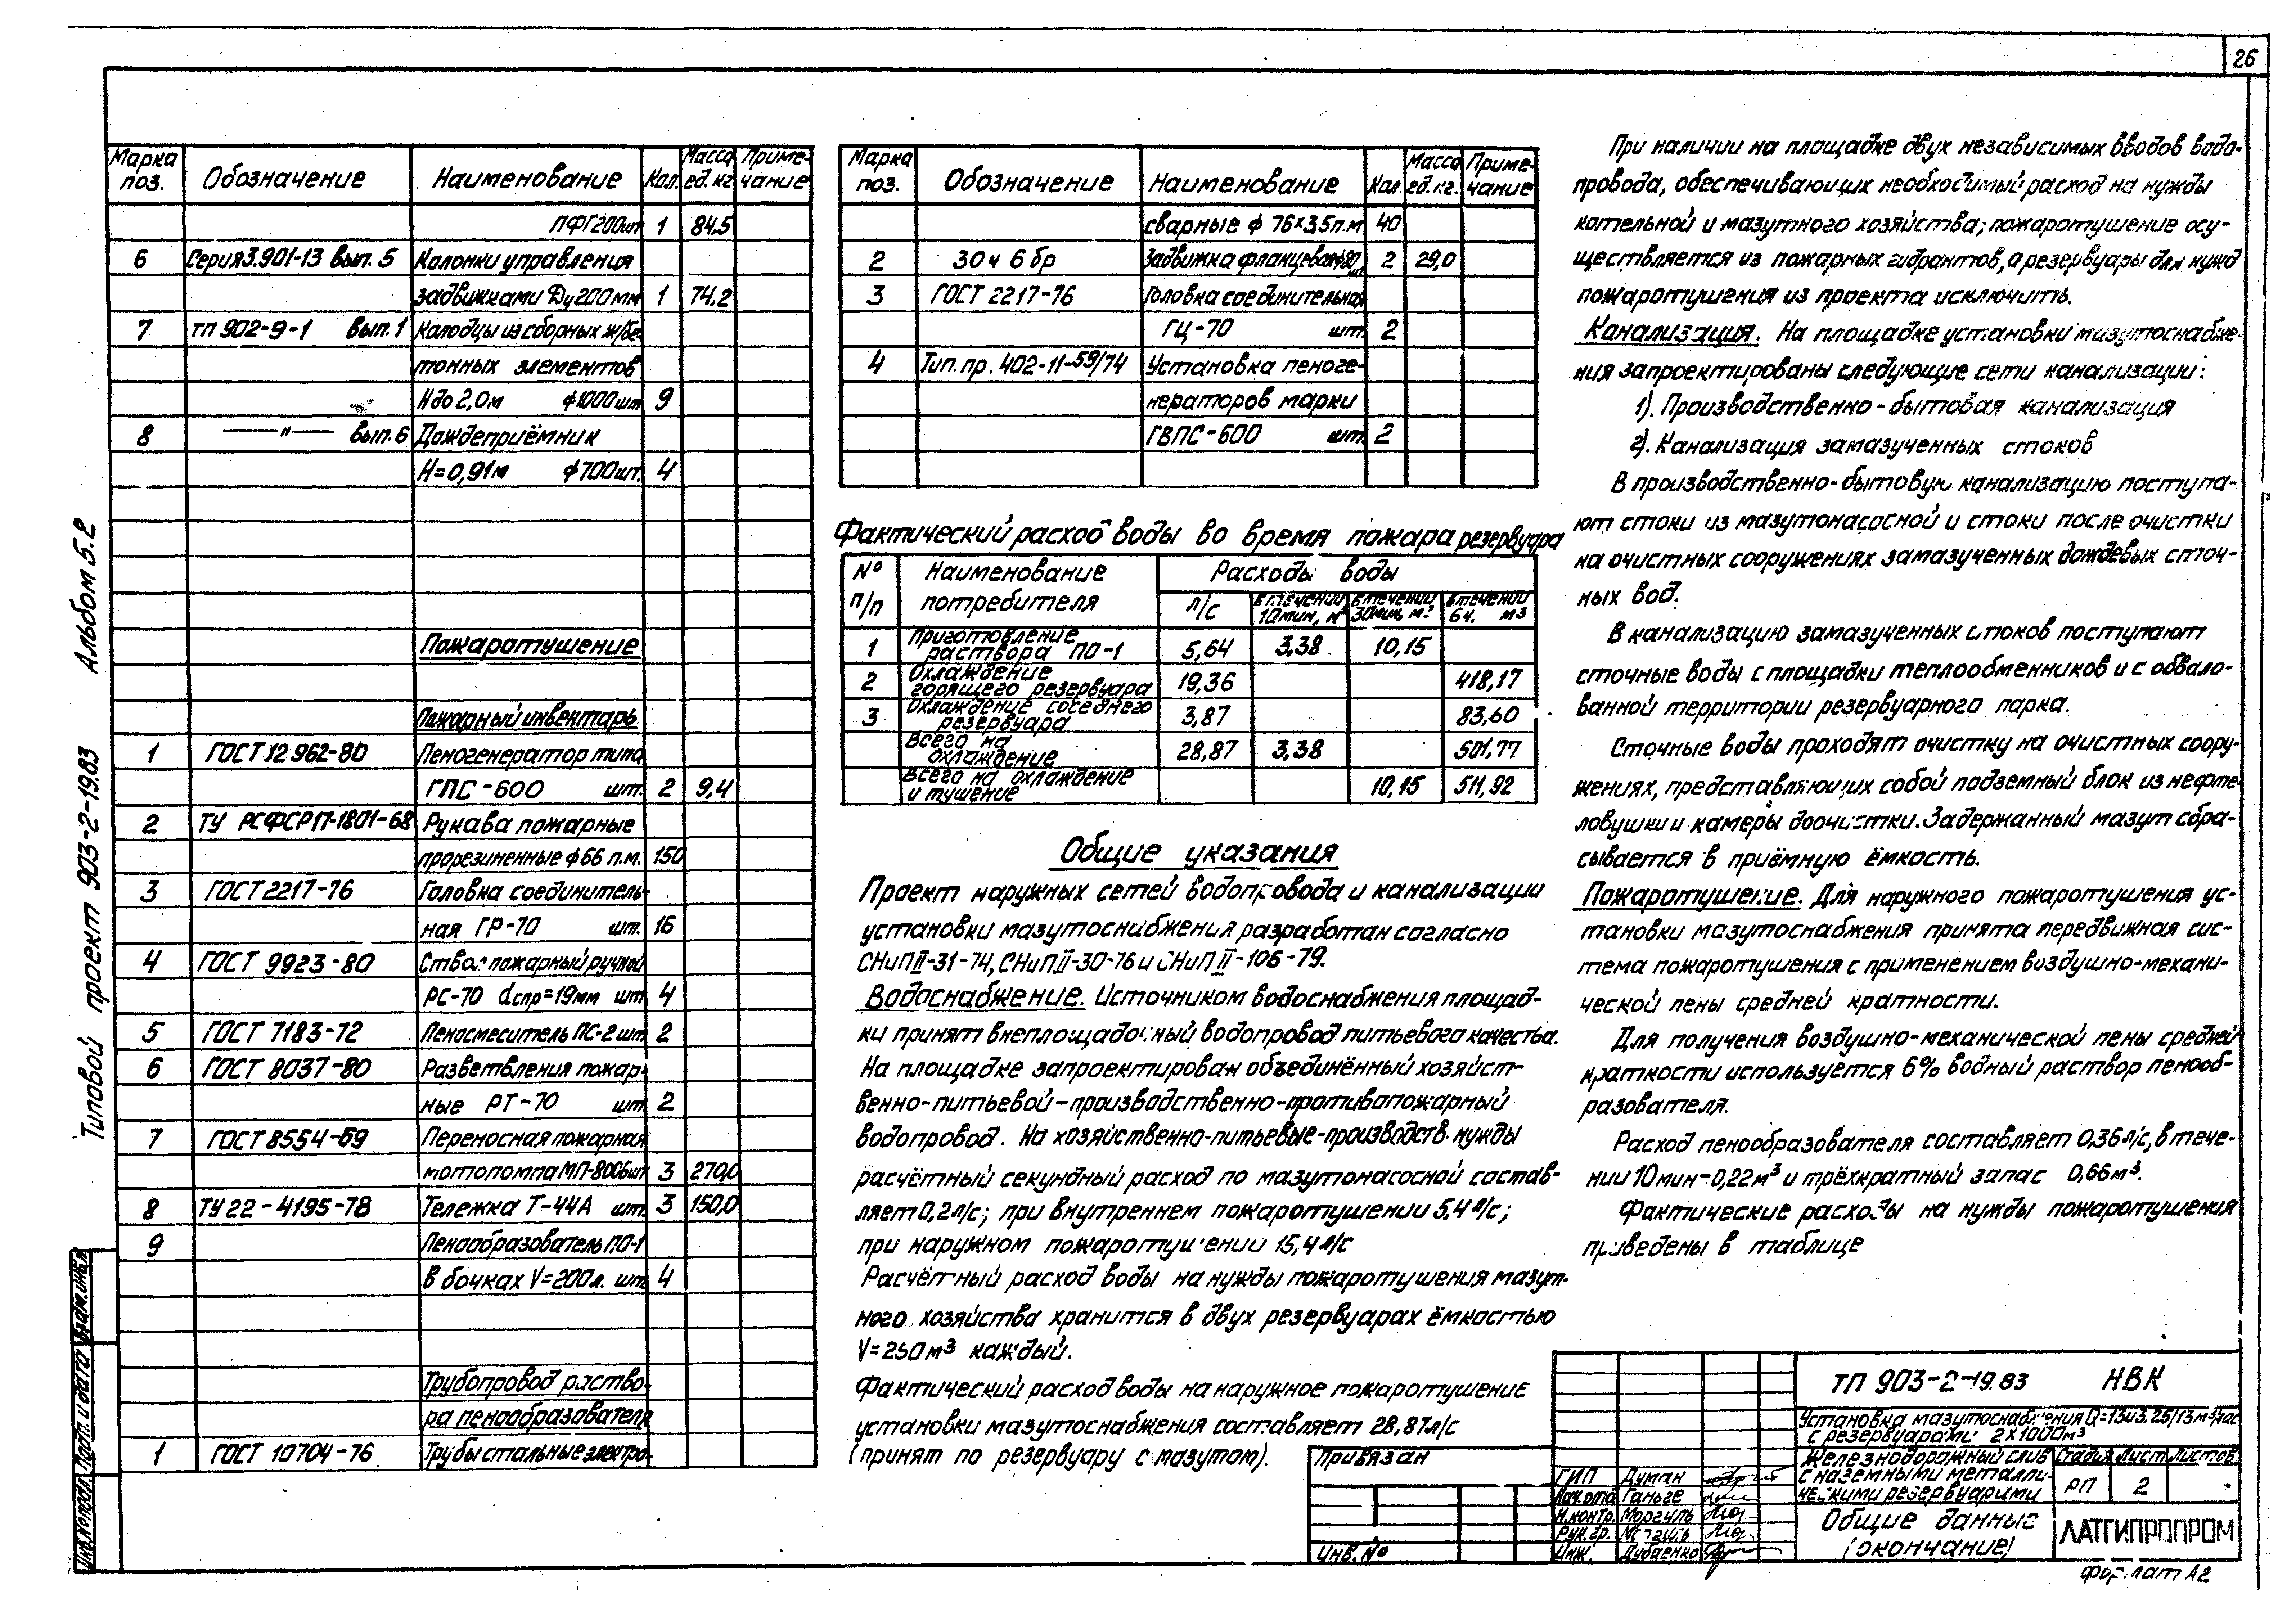 26
Альбом 5.2
Типовой проект 903-2-19.83
Марка поз. Обозначение Наименование Кол. Масса ед. кг Примечание
ПФГ200шт 1 84.5
6 Серия3.901-13 вып. 5 Колонки управления
задвижками Ду200мм 1 74,2
7 ТП 902-9-1 вып. 1 Колодцы из сборных ж/бе-
тонных элементов
H до 2,0м ф1000 шт 9
8 —"— вып. 6 Дождеприёмник
H=0,91м ф700шт. 4
Пожаротушение
Пожарный инвентарь
1 ГОСТ 12 962-80 Пеногенератор типа
ГПС-600 шт. 2 9,4
2 ТУ РСФСР17-1801-68 Рукава пожарные
прорезиненные ф66 п.м. 150
3 ГОСТ 2217-76 Головка соединитель-
ная ГР-70 шт. 16
4 ГОСТ 9923-80 Ствол пожарный ручной
РС-70 dспр=19мм шт 4
5 ГОСТ 7183-72 Пеносмеситель ПС-2 шт. 2
6 ГОСТ 8037-80 Разветвления пожар-
ные РТ-70 шт 2
7 ГОСТ 8554-69 Переносная пожарная
мотопомпа МП-800Бшт 3 270,0
8 ТУ 22-4195-78 Тележка Т-44А шт. 3 150,0
9 Пенообразователь ПО-1
в бочках V=200л. шт 4
Трубопровод раство-
ра пенообразователя
1 ГОСТ 10704-76 Трубы стальные электро-
Марка поз. Обозначение Наименование Кол. Масса ед. кг. Примечание
сварные ф 76×3.5 п.м 40
2 30ч 6 бр Задвижка фланцевая ф80 шт 2 29,0
3 ГОСТ 2217-76 Головка соединительная
ГЦ-70 шт. 2
4 Тип. пр. 402-11-59/74 Установка пеноге-
нераторов марки
ГВПС-600 шт. 2
Фактический расход воды во время пожара резервуара
№ п/п Наименование потребителя Расходы воды
л/с в течении 10мин, м³ в течении 30мин, м³ в течении 6ч. м3
1 Приготовление раствора ПО-1 5,64 3,38 10,15
2 Охлаждение горящего резервуара 19,36 418,17
3 Охлаждение соседнего резервуара 3,87 83,60
Всего на охлаждение 28,87 3,38 501,77
Всего на охлаждение и тушение 10,15 511,92
Общие указания
Проект наружных сетей водопровода и канализации
установки мазутоснабжения разработан согласно
СНиП II-31-74, СНиП II-30-76 и СНиП II-106-79.
Водоснабжение. Источником водоснабжения площад-
ки принят внеплощадочный водопровод питьевого качества.
На площадке запроектирован объединённый хозяйст-
венно-питьевой-производственно-противопожарный
водопровод. На хозяйственно-питьевые-производств. нужды
расчётный секундный расход по мазутонасосной состав-
ляет 0,2л/с; при внутреннем пожаротушении 5,4 л/с;
при наружном пожаротушении 15,4 л/с
Расчётный расход воды на нужды пожаротушения мазут-
ного хозяйства хранится в двух резервуарах ёмкостью
V=250м³ каждый.
Фактический расход воды на наружное пожаротушение
установки мазутоснабжения составляет 28,87л/с
(принят по резервуару с мазутом).
При наличии на площадке двух независимых вводов водо-
провода, обеспечивающих необходимый расход на нужды
котельной и мазутного хозяйства; пожаротушение осу-
ществляется из пожарных гидрантов, а резервуары для нужд
пожаротушения из проекта исключить.
Канализация. На площадке установки мазутоснабже-
ния запроектированы следующие сети канализации:
1). Производственно-бытовая канализация
2). Канализация замазученных стоков
В производственно-бытовую канализацию поступа-
ют стоки из мазутонасосной и стоки после очистки
на очистных сооружениях замазученных дождевых сточ-
ных вод.
В канализацию замазученных стоков поступают
сточные воды с площадки теплообменников и с обвало-
ванной территории резервуарного парка.
Сточные воды проходят очистку на очистных соору-
жениях, представляющих собой подземный блок из нефте-
ловушки и камеры доочистки. Задержанный мазут сбра-
сывается в приёмную ёмкость.
Пожаротушение. Для наружного пожаротушения ус-
тановки мазутоснабжения принята передвижная сис-
тема пожаротушения с применением воздушно-механи-
ческой пены средней кратности.
Для получения воздушно-механической пены средней
кратности используется 6% водный раствор пенооб-
разователя.
Расход пенообразователя составляет 0,36 л/с, в тече-
нии 10 мин-0,22м³ и трёхкратный запас 0,66м³.
Фактические расходы на нужды пожаротушения
приведены в таблице
Привязан
Инв. №
ГИП Думан
Нач.отд. Ганьге
Н.контр. Моргуль
Рук. гр. Моргуль
Инж.
ТП 903-2-19.83 НВК
Установка мазутоснабжения Q=13и3.25/13м³/час
с резервуарами 2×1000м³
Железнодорожный слив
с наземными металли-
ческими резервуарами
Стадия Лист Листов
РП 2
Общие данные
(окончание)
ЛАТГИПРОПРОМ
Формат А2
Взам.инв.№
Подп. и дата
Инв.№подл.